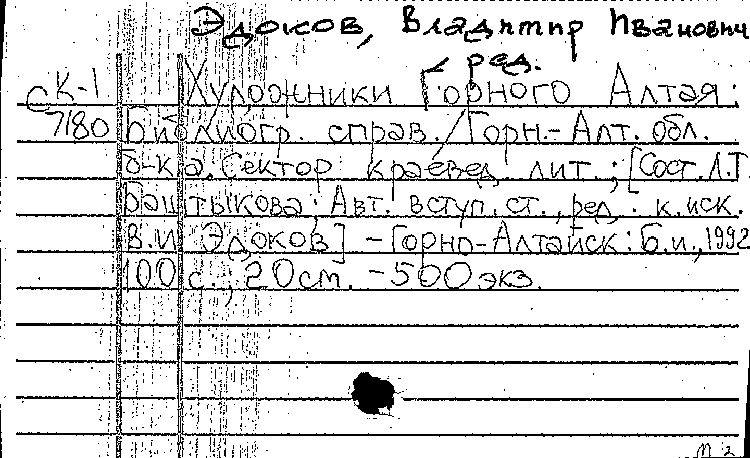 Эдоков, Владимир Иванович
ред.
СК-1 Художники Горного Алтая:
7180 Библиогр. справ./Горн.-Алт. обл.
б-ка. Сектор краевед. лит.; [Сост. Л.Т.
Баштыкова; Авт. вступ. ст., ред. к. иск.
В.И. Эдоков] - Горно-Алтайск: Б.и., 1992
100 с.; 20 см. - 500 экз.